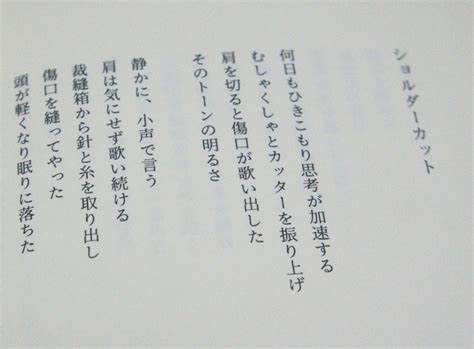 ショルダーカット
何日もひきこもり思考が加速する
むしゃくしゃとカッターを振り上げ
肩を切ると傷口が歌い出した
そのトーンの明るさ
静かに、小声で言う
肩は気にせず歌い続ける
裁縫箱から針と糸を取り出し
傷口を縫ってやった
頭が軽くなり眠りに落ちた